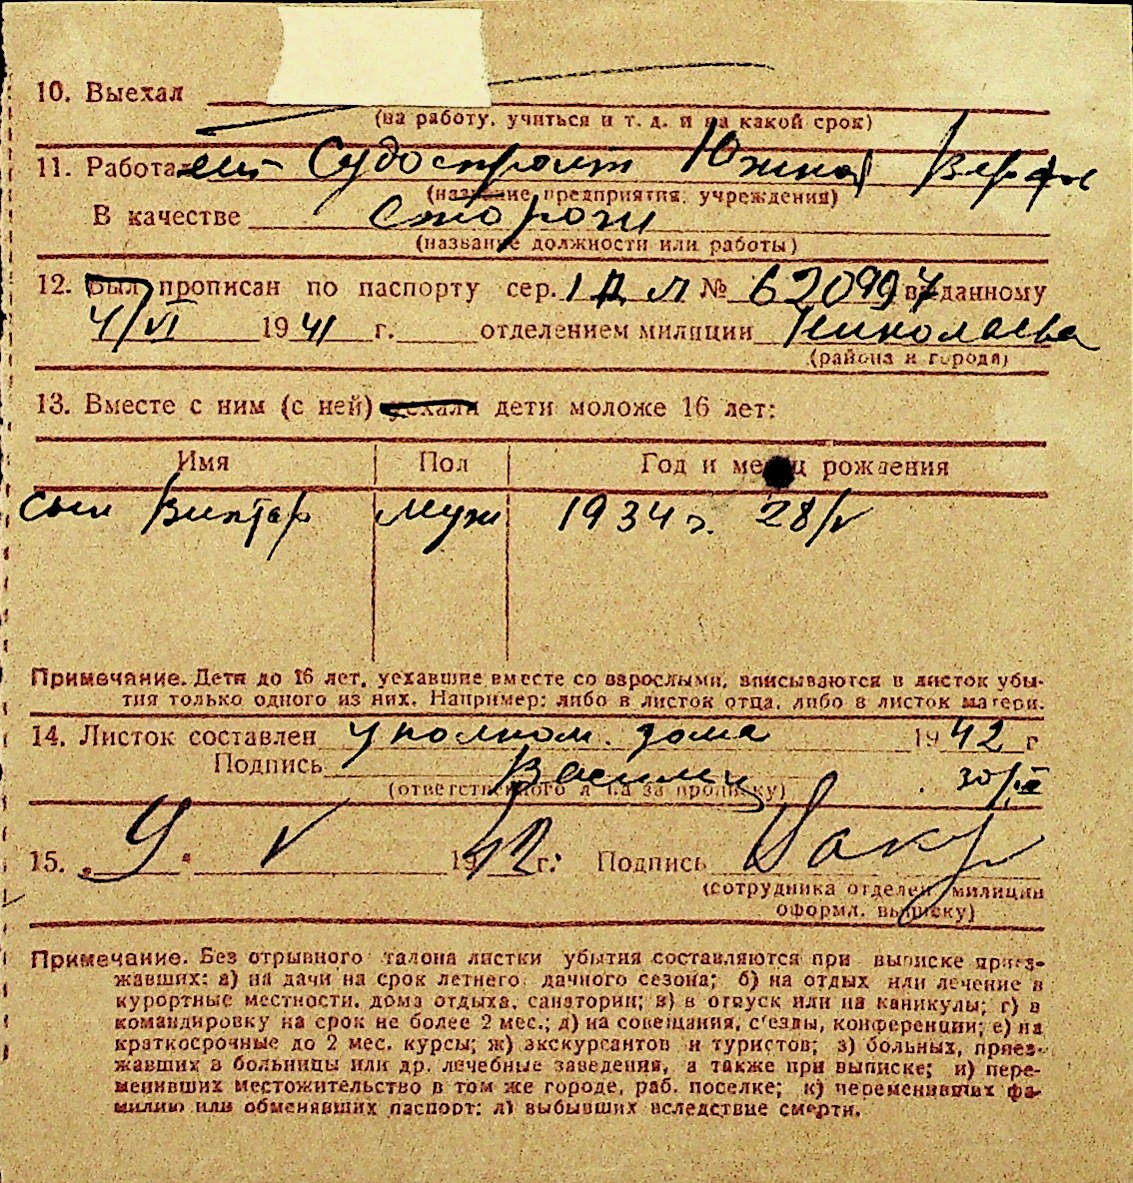 10. Выехал
(на работу, учиться и т. д. и на какой срок)
11. Работает Судостроит Южной Верфи
(название предприятия, учреждения)
В качестве сторожи
(название должности или работы)
12. Был прописан по паспорту сер. I Д М № 620997 выданному
4/VI 1941 г. отделением милиции Николаева
(района и города)
13. Вместе с ним (с ней) уехали дети моложе 16 лет:
Имя Пол Год и месяц рождения
сын Виктор муж 1934 г. 28/V
Примечание. Дети до 16 лет, уехавшие вместе со взрослыми, вписываются в листок убы-
тия только одного из них. Например: либо в листок отца, либо в листок матери.
14. Листок составлен уполном. дома 1942 г
Подпись
(ответственного л-ца за прописку)
15. „9" V 1942 г. Подпись
(сотрудника отделен. милиции
оформл. выписку)
Примечание. Без отрывного талона листки убытия составляются при выписке приез-
жавших: а) на дачи на срок летнего дачного сезона; б) на отдых или лечение в
курортные местности, дома отдыха, санатории; в) в отпуск или на каникулы; г) в
командировку на срок не более 2 мес.; д) на совещания, с'езды, конференции; е) на
краткосрочные до 2 мес. курсы; ж) экскурсантов и туристов; з) больных, приез-
жавших в больницы или др. лечебные заведения, а также при выписке; и) пере-
менивших местожительство в том же городе, раб. поселке; к) переменивших фа-
милию или обменявших паспорт; л) выбывших вследствие смерти.